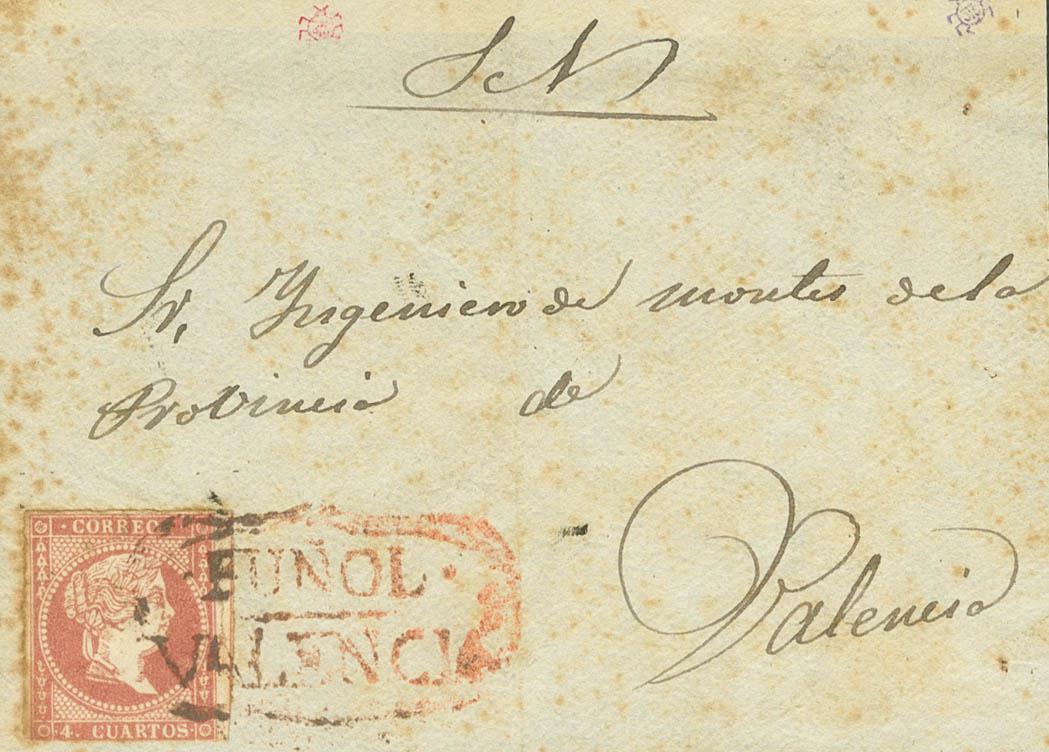 S N
Sr, Yngeniero de montes de la
Provincia de
Valencia
· CORREOS
· BUÑOL ·
VALENCIA
4. CUARTOS